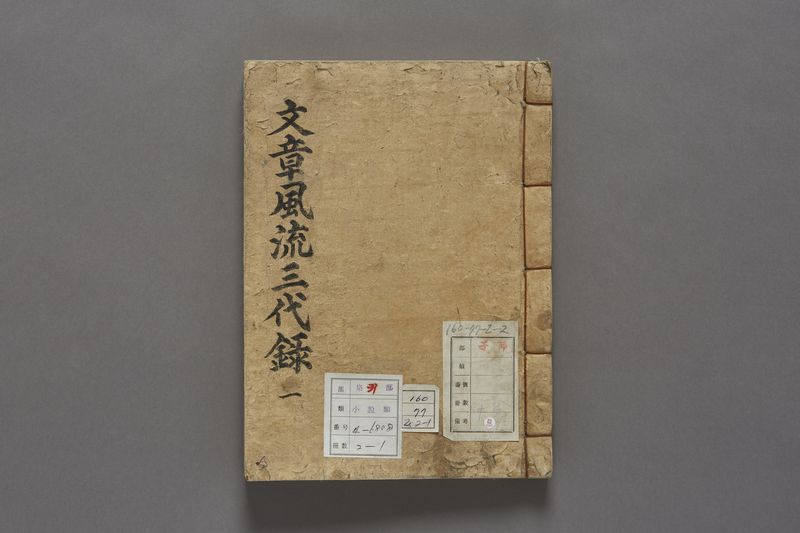 文章風流三代錄 一
部 集 部
類 小說類
番号 4-6808
冊数 2-1
160
77
2-1
160-77-2-2
部 子部
類
番號
冊數
備考